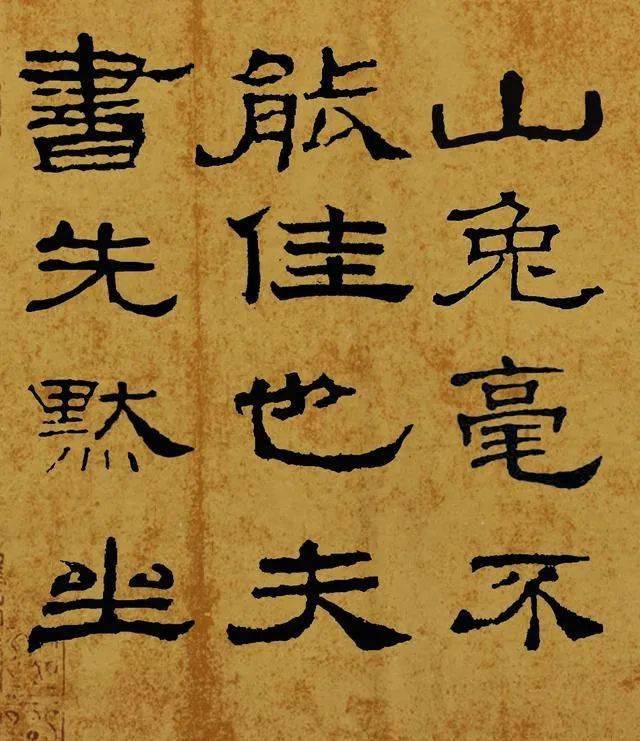 山兔毫不
能佳也夫
書先默坐